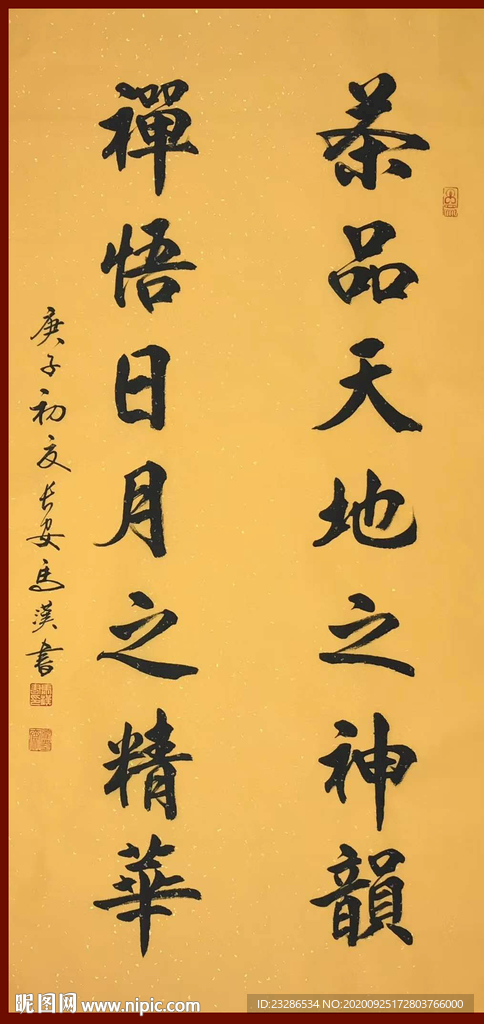 茶品天地之神韻
禪悟日月之精華
庚子初夏長安馬漢書
昵图网 www.nipic.com
ID:23286534 NO:20200925172803766000